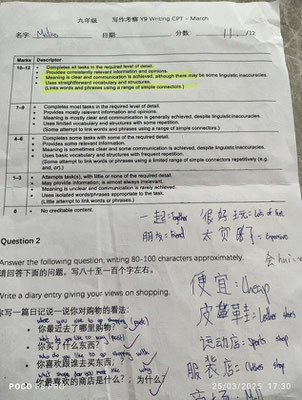 九年級 写作考察 Y9 Writing CPT - March
名字: 日期: 分数: 11 /12
Marks Descriptor
10–12 • Completes all tasks in the required level of detail.
• Provides consistently relevant information and opinions.
• Meaning is clear and communication is achieved, although there may be some linguistic inaccuracies.
• Uses straightforward vocabulary and structures.
(Links words and phrases using a range of simple connectors.)
7–9 • Completes most tasks in the required level of detail.
• Provides mostly relevant information and opinions.
• Meaning is mostly clear and communication is generally achieved, despite linguistic inaccuracies.
• Uses limited vocabulary and structures with some repetition.
(Some attempt to link words and phrases using a range of simple connectors.)
4–6 • Completes some tasks with some of the required detail.
• Provides some relevant information.
• Meaning is sometimes clear and some communication is achieved, despite linguistic inaccuracies.
• Uses basic vocabulary and structures with frequent repetition.
(Some attempt to link words or phrases using a limited range of simple connectors repetitively (e.g. and, or).)
1–3 • Attempts task(s), with little or none of the required detail.
• May provide information; is almost always irrelevant.
• Meaning is unclear and communication is rarely achieved.
• Uses isolated words/phrases appropriate to the task.
(Little attempt to link words or phrases.)
0 • No creditable content.
一起: Together 很好玩: Lots of fun
朋友: Friend 太贵了: Expensive
Question 2
会 hui
Answer the following question, writing 80-100 characters approximately.
請回答下面的问题。写八十至一百个字左右。
便宜: Cheap
Write a diary entry giving your views on shopping.
皮鞋: Leather shoes
你写一篇日记说一说你对购物的看法:
where you like to go shopping (past)
• 你最近去了哪里购物?
运动店: Sports shop
• 你买了什么东西?
who do you like to go shopping with
• 你喜欢跟谁去买东西?
服装店: Clothes shop
• 你最喜欢的商店是什么? 为什么?
POCO F5 PRO 25/03/2025 17:30